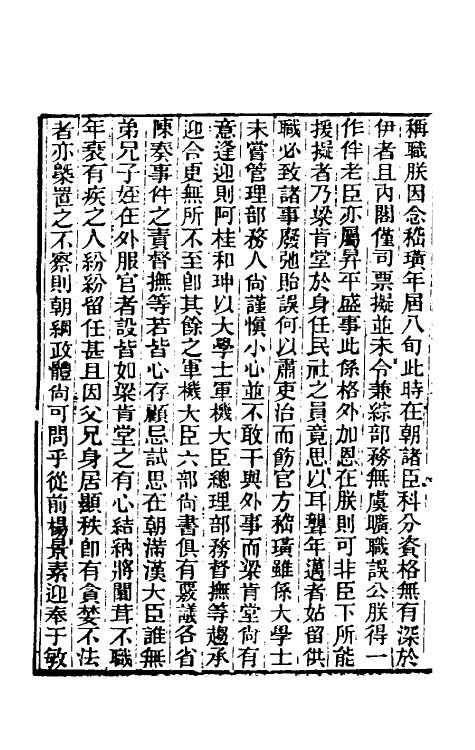 稱職朕因念嵇璜年屆八旬此時在朝諸臣科分資格無有深於
伊者且內閣僅司票擬並未令兼綜部務無虞曠職誤公朕得一
作伴老臣亦屬昇平盛事此係格外加恩在朕則可非臣下所能
援擬者乃梁肯堂於身任民社之員竟思以耳聾年邁者姑留供
職必致諸事廢弛貽誤何以肅吏治而飭官方嵇璜雖係大學士
未嘗管理部務人尚謹慎小心並不敢干與外事而梁肯堂尚有
意逢迎則阿桂和珅以大學士軍機大臣總理部務督撫等趨承
迎合更無所不至卽其餘之軍機大臣六部尚書俱有覈議各省
陳奏事件之責督撫等若皆心存顧忌試思在朝滿漢大臣誰無
弟兄子姪在外服官者設皆如梁肯堂之有心結納將闒茸不職
年衰有疾之人紛紛留任甚且因父兄身居顯秩卽有貪婪不法
者亦槩置之不察則朝綱政體尚可問乎從前楊景素迎奉于敏